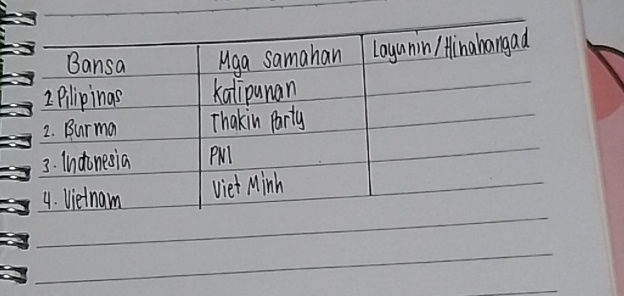 Bansa Mga samahan Layunin/Hinahangad
2 Pilipinas Katipunan
2. Burma Thakin Party
3. Indonesia PNI
4. Vietnam Viet Minh